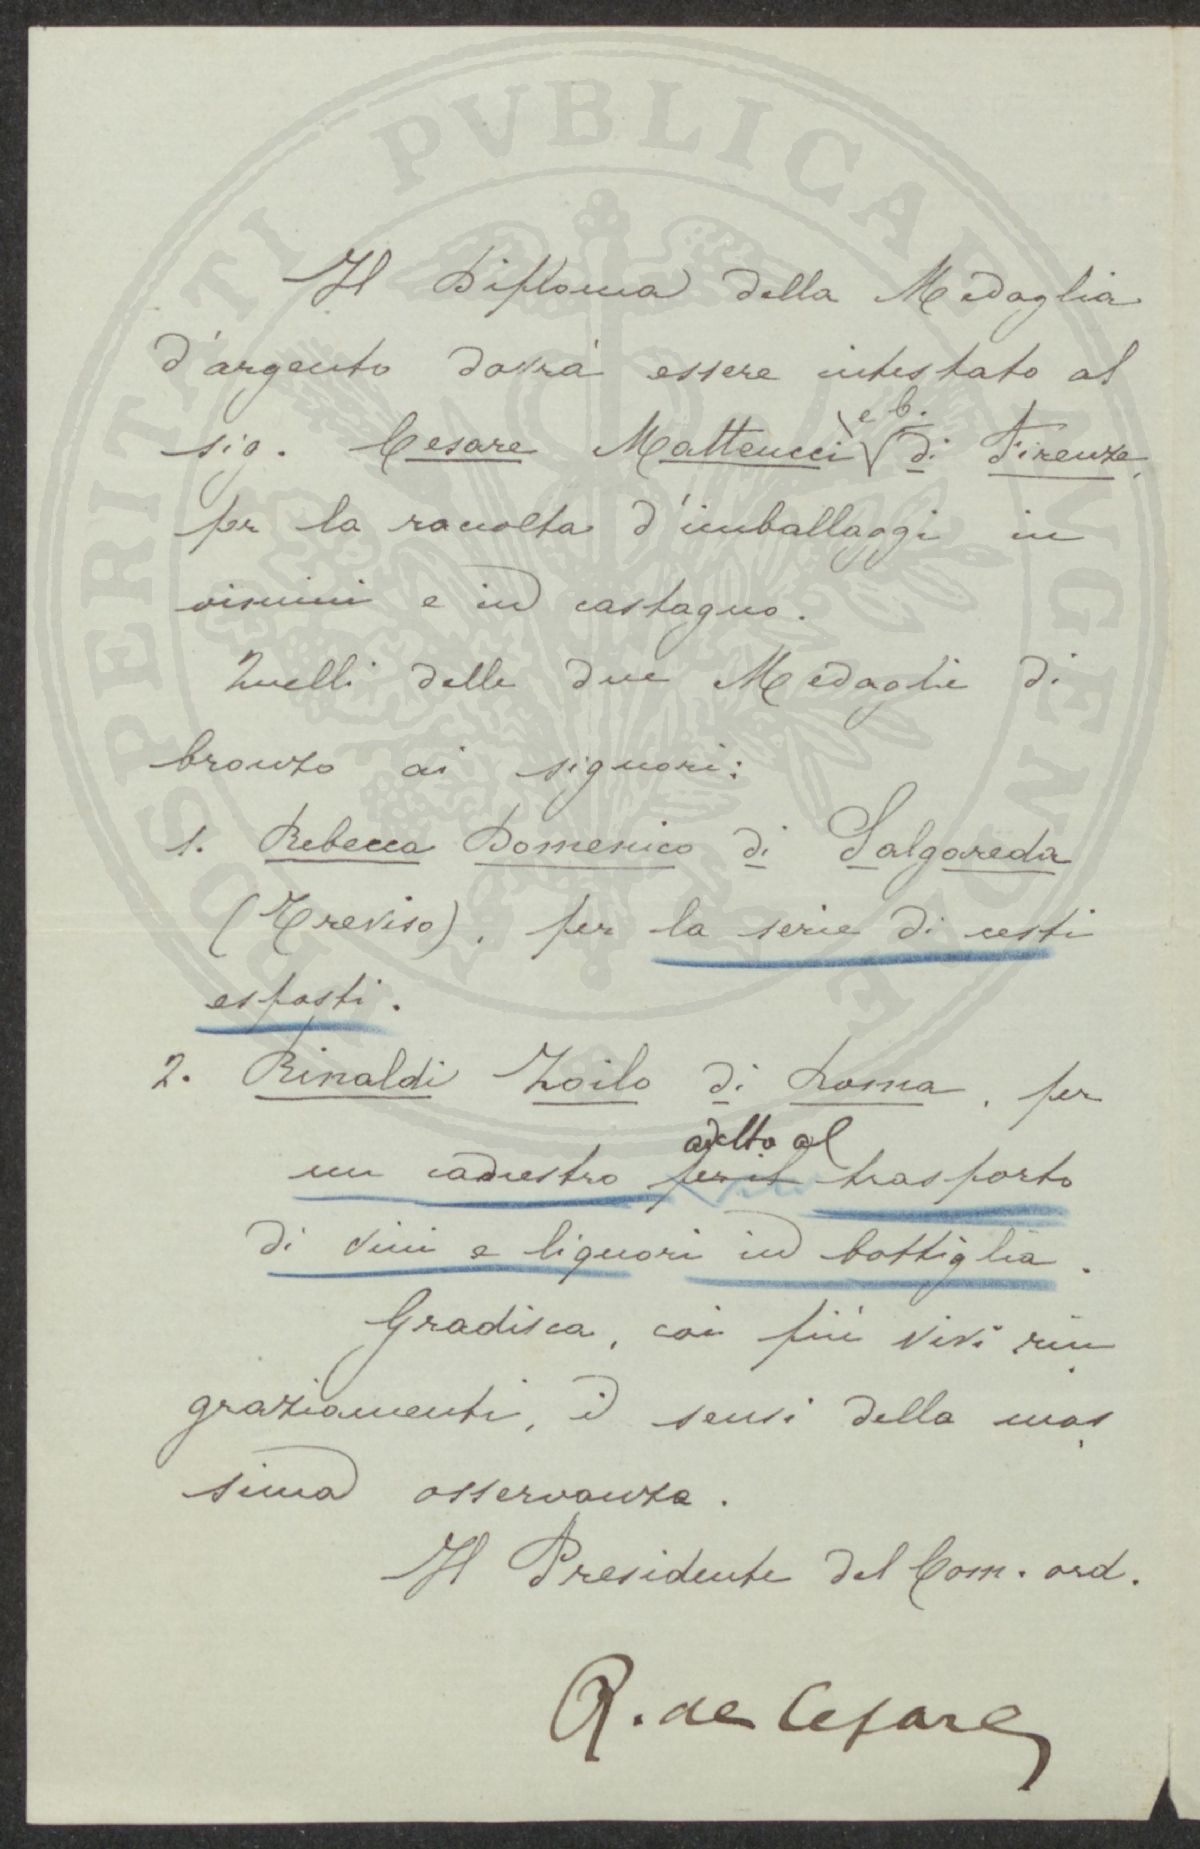 Il Diploma della Medaglia
d'argento dovrà essere intestato al
sig. Cesare Matteucci e b. di Firenze,
per la raccolta d'imballaggi in
vimini e in castagno.
Quelli delle due Medaglie di
bronzo ai signori:
1. Rebecca Domenico di Salgareda
(Treviso), per la serie di cesti
esposti.
2. Rinaldi Zoilo di Roma, per
adatto al
un canestro per il trasporto
di vini e liquori in bottiglia.
Gradisca, coi più vivi rin
graziamenti, i sensi della mas
sima osservanza.
Il Presidente del Com. ord.
R. de Cesare
PROSPERITATI PVBLICAE AVGENDAE